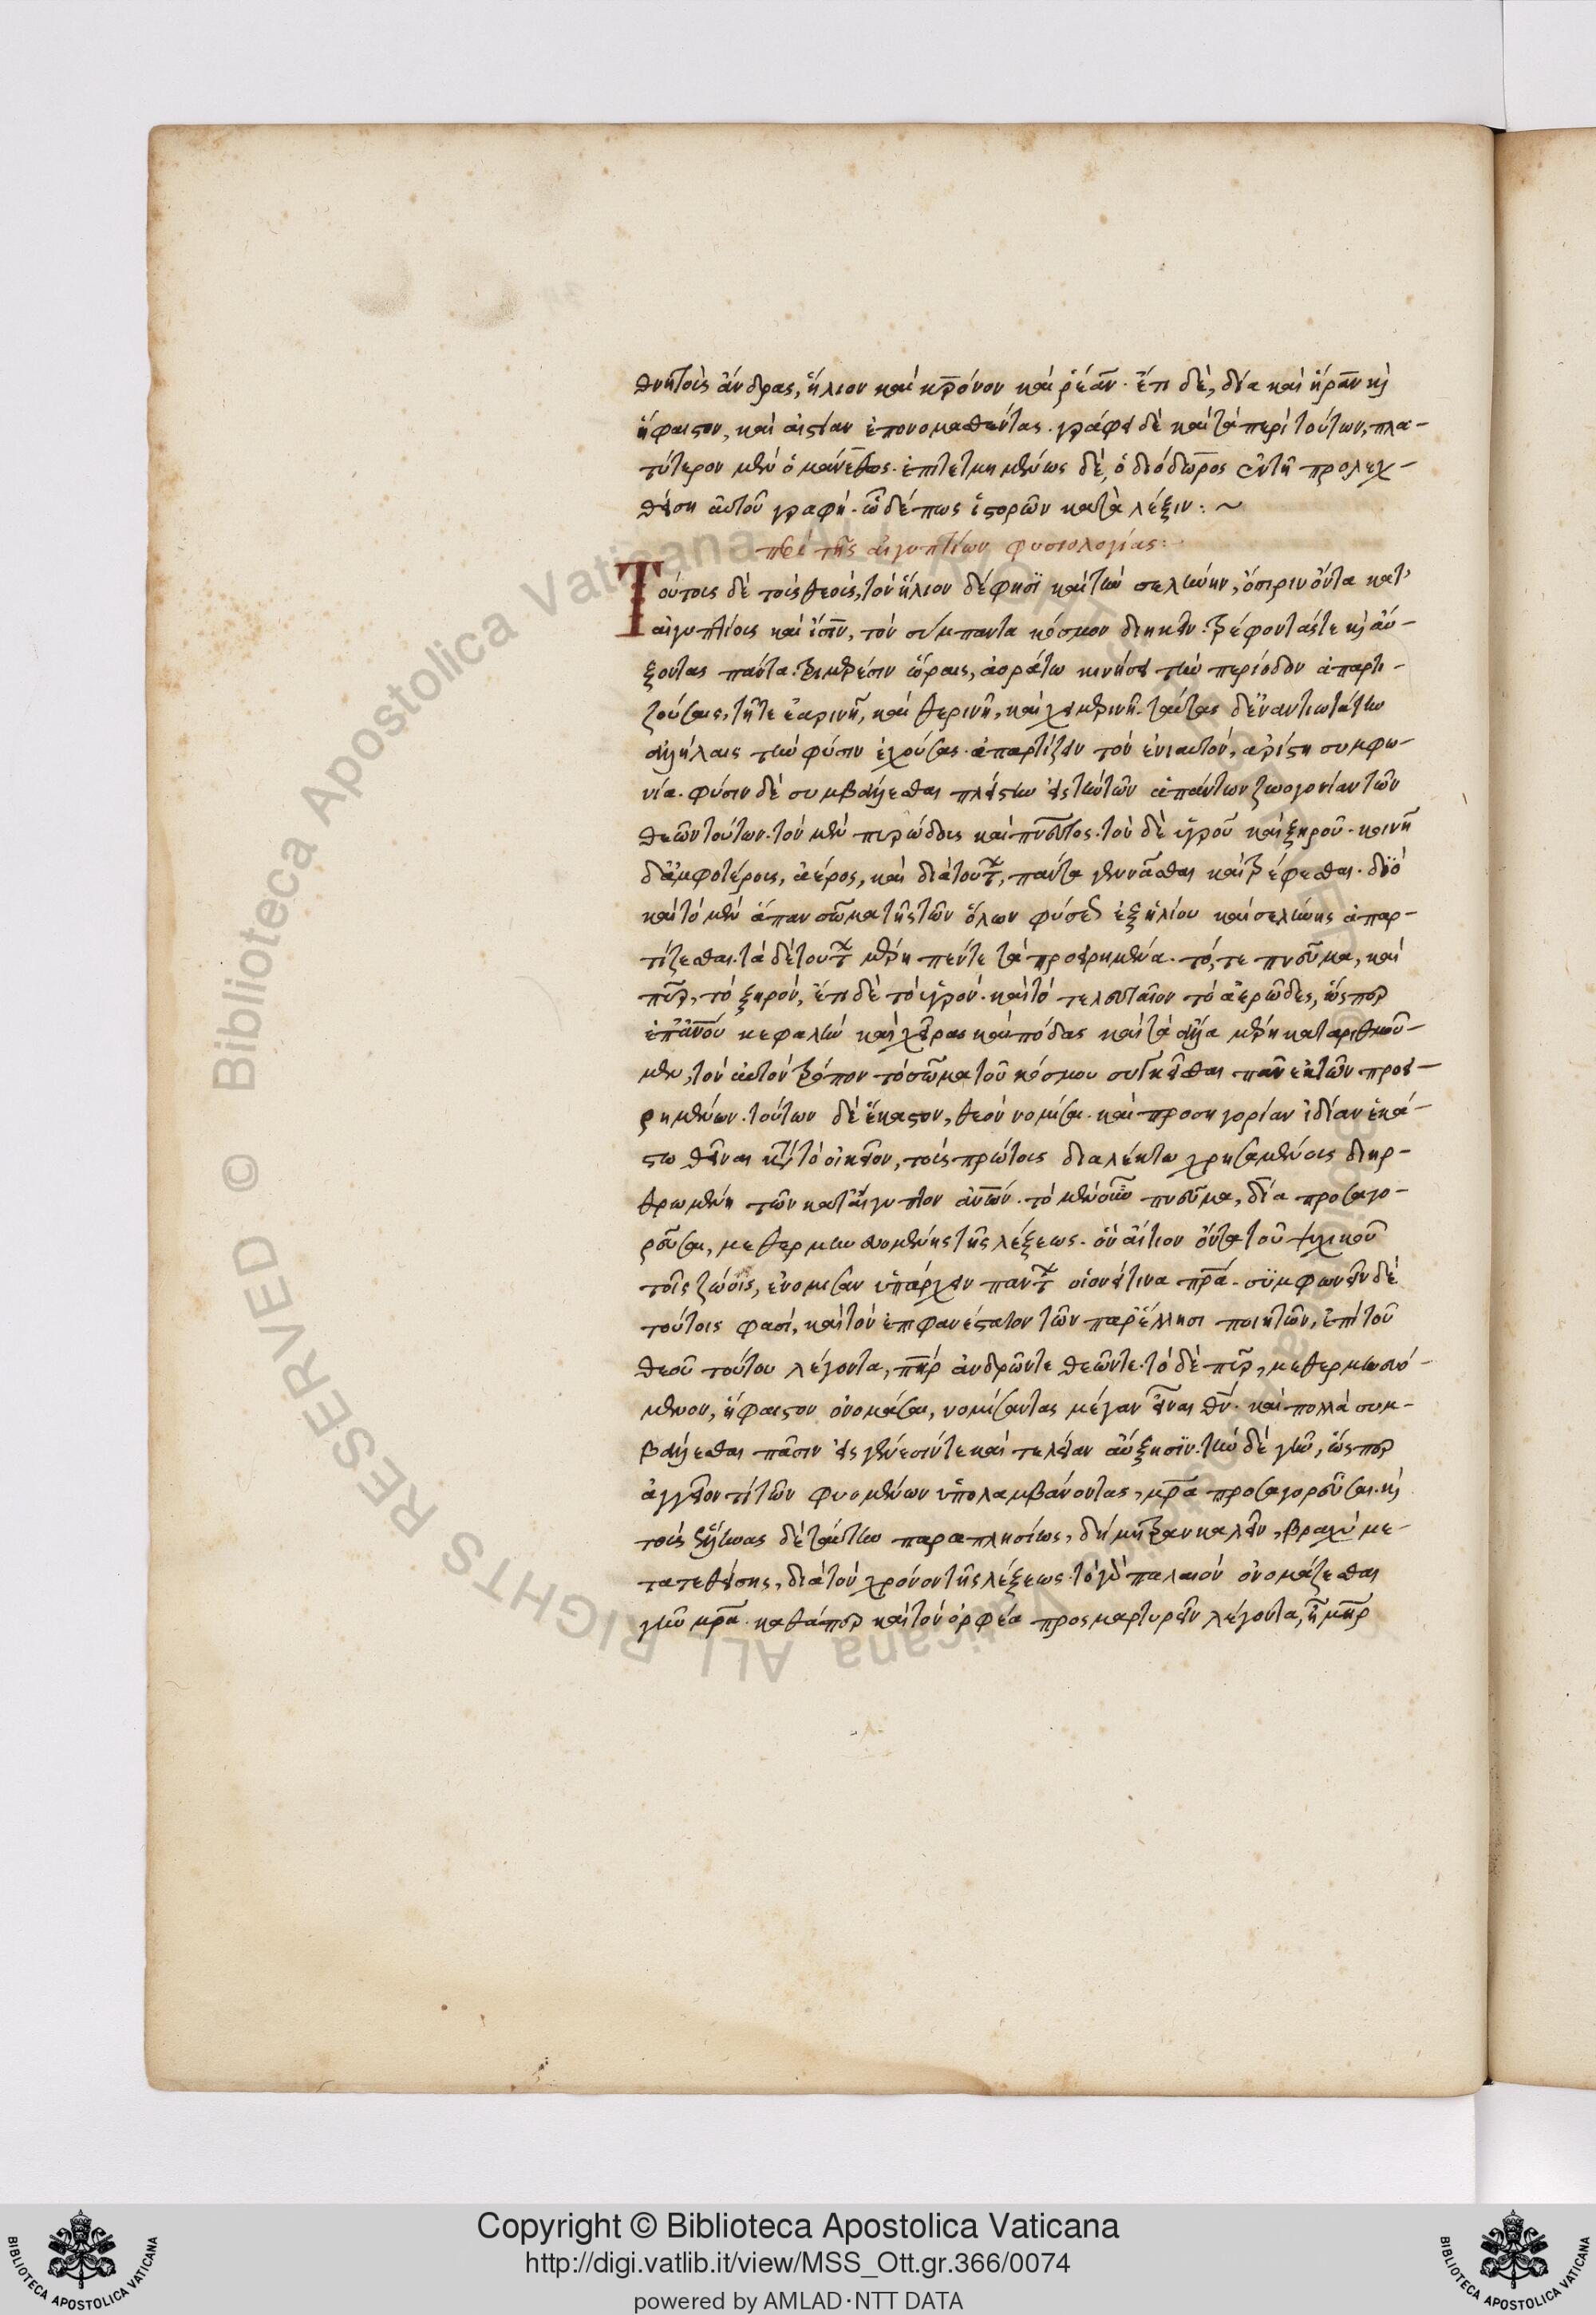 θνητοὺς ἄνδρας, ἥλιον καὶ κρόνον καὶ ῥέαν. ἔτι δὲ, δία καὶ ἥραν κ
ἥφαιστον, καὶ ἑστίαν ἐπονομασθέντας. γράφει δὲ καὶ τὰ περὶ τούτων, πλα-
τύτερον μὲν ὁ μάνεθως. ἐπιτετμημένως δὲ, ὁ διόδωρος ἐν τῇ προλεχ-
θείσῃ αὐτοῦ γραφῇ. ὧδέ πως ἱστορῶν κατὰ λέξιν: ~
περὶ τῆς αἰγυπτίων φυσιολογίας:
Τούτοις δὲ τοῖς θεοῖς, τὸν ἥλιον δέ φησι καὶ τὴν σελήνην, ὄσιριν ὄντα κατ'
αἰγυπτίοις καὶ ἴσιν, τὸν σύμπαντα κόσμον διηκεῖν. τρέφοντάς τε κ αὔ-
ξοντας πάντα. τριμερέσιν ὥραις, ἀοράτω κινήσει τὴν περίοδον ἀπαρτι-
ζούσαις, τῆτε ἐαρινῆ, καὶ θερινῆ, καὶ χειμερινῆ. ταύτας δ' ἐναντιωτάτην
ἀλλήλαις τὴν φύσιν ἐχούσας. ἀπαρτίζειν τὸν ἐνιαυτὸν, ἀρίστη συμφω-
νία. φύσιν δὲ συμβάλλεσθαι πλείστην εἰς τὴν τῶν ἁπάντων ζωογονίαν τῶν
θεῶν τούτων. τὸν μὲν πυρώδους καὶ πνεύματος. τὸν δὲ ὑγροῦ καὶ ξηροῦ. κοινῇ
δ' ἀμφοτέροις, ἀέρος, καὶ διὰ τούτων, πάντα γεννᾶσθαι καὶ τρέφεσθαι. διὸ
καὶ τὸ μὲν ἅπαν σῶμα τῆς τῶν ὅλων φύσεως ἐξ ἡλίου καὶ σελήνης ἀπαρ-
τίζεσθαι. τὰ δὲ τούτων μέρη πέντε τὰ προειρημένα. τό, τε πνεῦμα, καὶ
πῦρ, τὸ ξηρὸν, ἔτι δὲ τὸ ὑγρόν. καὶ τὸ τελευταῖον τὸ ἀερῶδες, ὥσπερ
ἐπ' ἀνθρώπου κεφαλὴν καὶ χεῖρας καὶ πόδας καὶ τὰ ἄλλα μέρη καταριθμοῦ-
μεν, τὸν αὐτὸν τρόπον τὸ σῶμα τοῦ κόσμου συγκεῖσθαι πᾶν ἐκ τῶν προει-
ρημένων. τούτων δὲ ἕκαστον, θεὸν νομίσαι. καὶ προσηγορίαν ἰδίαν ἑκά-
στω θεῖναι κατὰ τὸ οἰκεῖον, τοῖς πρώτοις διαλέκτω χρησαμένοις διηρ-
θρωμένη τῶν κατ' αἴγυπτον ἀνθρώπων. τὸ μὲν οὖν πνεῦμα, δία προσαγο-
ρεῦσαι, μεθερμηνευομένης τῆς λέξεως. ὃν αἴτιον ὄντα τοῦ ψυχικοῦ
τοῖς ζώοις, ἐνόμισαν ὑπάρχειν πάντων οἱονεί τινα πατέρα. συμφωνεῖν δὲ
τούτοις φασὶ, καὶ τὸν ἐπιφανέστατον τῶν παρ' ἕλλησι ποιητῶν, ἐπὶ τοῦ
θεοῦ τούτου λέγοντα, πατὴρ ἀνδρῶντε θεῶντε. τὸ δὲ πῦρ, μεθερμηνευό-
μενον, ἥφαιστον ὀνομάσαι, νομίσαντας μέγαν εἶναι θεόν. καὶ πολλὰ συμ-
βάλλεσθαι πᾶσιν εἰς γένεσίν τε καὶ τελείαν αὔξησιν. τὴν δὲ γῆν, ὥσπερ
ἀγγεῖον τί τῶν φυομένων ὑπολαμβάνοντας, μητέρα προσαγορεῦσαι. κ
τοὺς ἕλληνας δὲ ταύτην παραπλησίως, δήμητραν καλεῖν, βραχὺ με-
τατεθείσης, διὰ τὸν χρόνον τῆς λέξεως. τὸ γὰρ παλαιὸν ὀνομάζεσθαι
γῆν μητέρα. καθάπερ καὶ τὸν ὀρφέα προσμαρτυρεῖν λέγοντα, γῆ μήτηρ
Copyright © Biblioteca Apostolica Vaticana
http://digi.vatlib.it/view/MSS_Ott.gr.366/0074
powered by AMLAD·NTT DATA